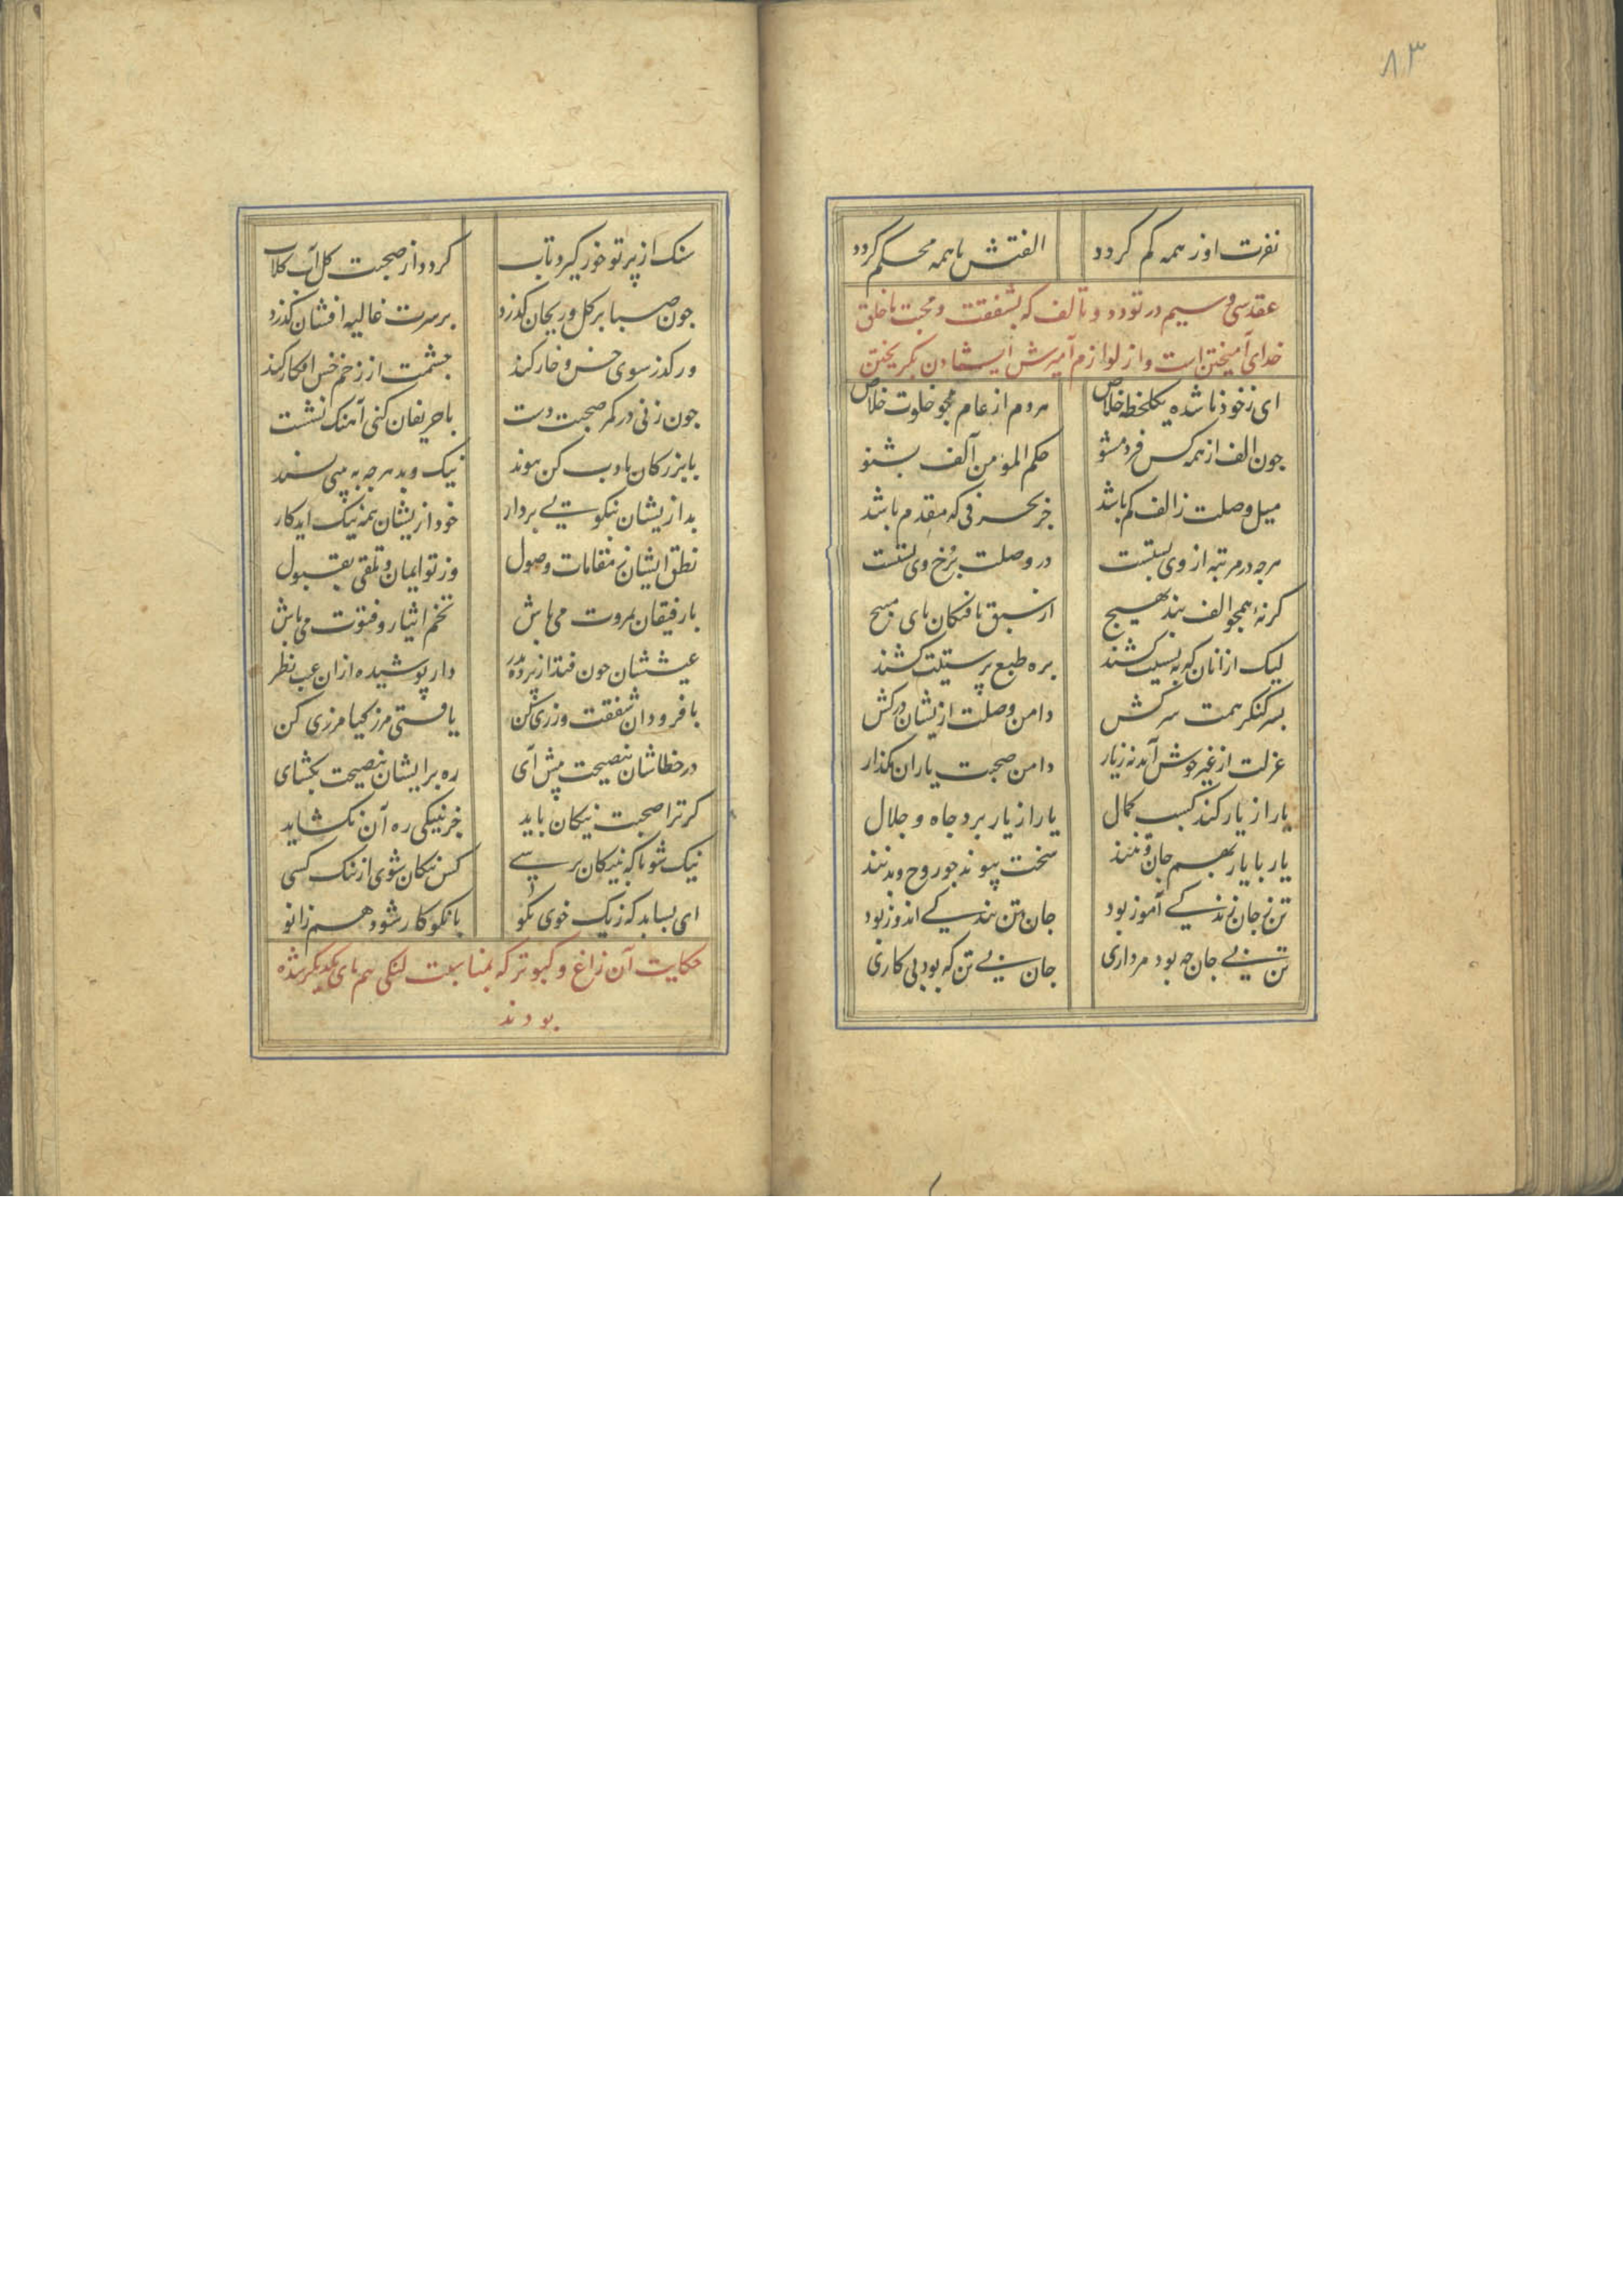 ۸۳
نفرت او ز همه کم کردد الفتش با همه محکم کردد
عقد سی و سیم در تودد و تالف که بشفقت و محبت با خلق
خدای آمیختن است و از لوازم آمیزش ایشان نکریختن
ای ز خود نا شده یکلحظه خلاص مردم از عام مجو خلوت خاص
جون الف از همه کس فرد مشو حکم المؤمن آلف بشنو
میل وصلت ز الف کم باشد جز بحرفی که مقدم باشد
هرجه در مرتبه از وی پستست در وصلت برخ وی بستست
کر نهٔ همجو الف بند بهیج از سبق یافتکان پای مپیچ
لیک از انان که به پستیت کشند بره طبع پرستیت کشند
بسر کنکر همت سر کش دامن وصلت ازیشان در کش
عزلت از غیر خوش آمد نه ز یار دامن صحبت یاران مکذار
یار از یار کند کسب کمال یار از یار برد جاه و جلال
یار با یار بهم جان و تنند سخت پیوند جو روح و بدنند
تن ز جان زندکی آموز بود جان بتن بندکی اندوز بود
تن بی جان جه بود مرداری جان بی تن که بود بی کاری
سنک از پرتو خور کیرد تاب کردد از صحبت کل آب کلاب
جون صبا بر کل و ریحان کذرد بر سرت غالیه افشان کذرد
ور کذر سوی خس و خار کند جشمت از زخم خس افکار کند
جون زنی در کمر صحبت دست با حریفان کنی آهنک نشست
با بزرکان بادب کن پیوند نیک و بد هرجه به بینی بپسند
بد ازیشان بنکویی بردار خود ازیشان همه نیک آید کار
نطق ایشان ز مقامات وصول وز تو ایمان و تلقی بقبول
با رفیقان بمروت می باش تخم ایثار و فتوت می پاش
عیبشان جون فتد از پرده بدر دار پوشیده ازان عیب نظر
با فرودان شفقت ورزی کن یافتی مرز کیا مرزی کن
در خطاشان بنصیحت پیش آی ره بر ایشان بنصیحت بکشای
کر ترا صحبت نیکان باید جز بنیکی ره آن نکشاید
نیک شو تا که به نیکان برسی کس نیکان شوی از ننک کسی
ای بسا بد که ز یک خوی نکو با نکو کار شود هم زانو
حکایت آن زاغ و کبوتر که بمناسبت لنکی هم پای یکدیکر شده
بودند